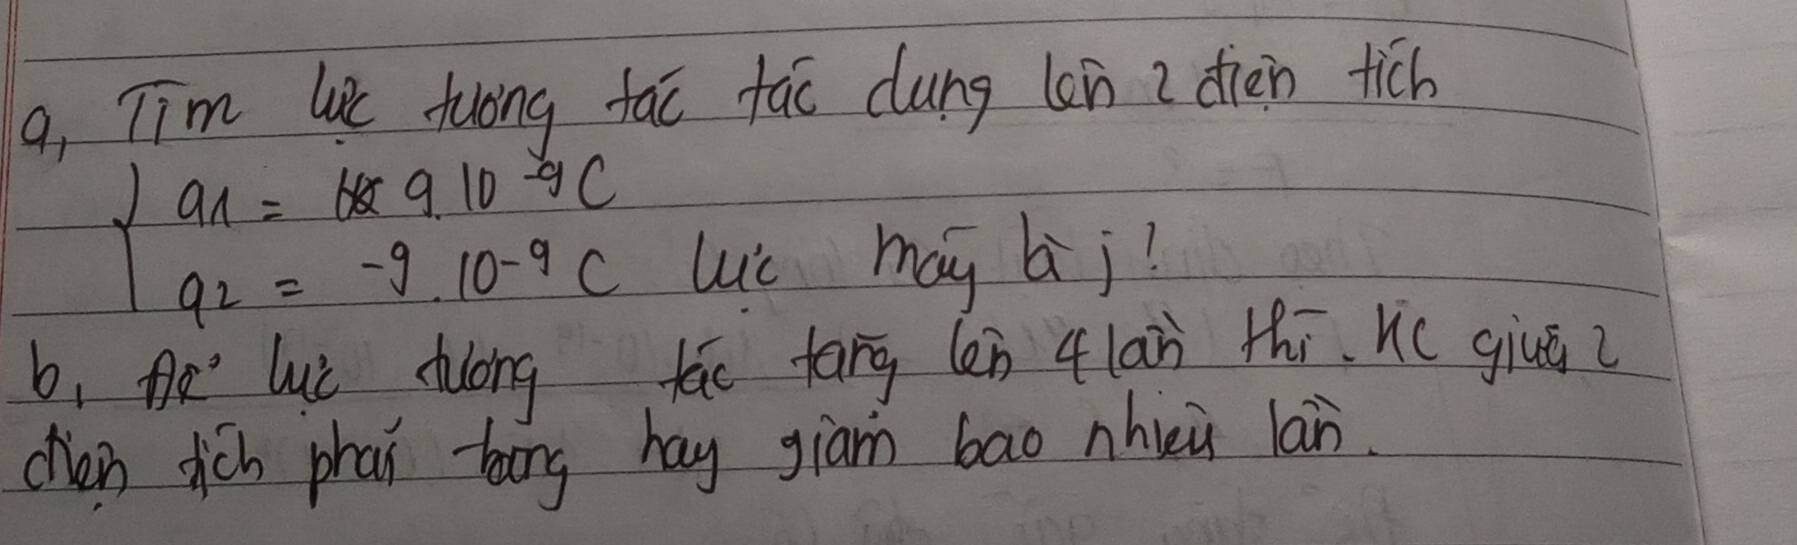 a, Tìm lực tương tác tác dụng lên 2 điện tích
q1 = 9.10-9C
q2 = -9.10-9C lực mấy là j?
b, Để lực tương tác tăng lên 4 lần thì. KC giữa 2
điện tích phải tăng hay giảm bao nhiêu lần.